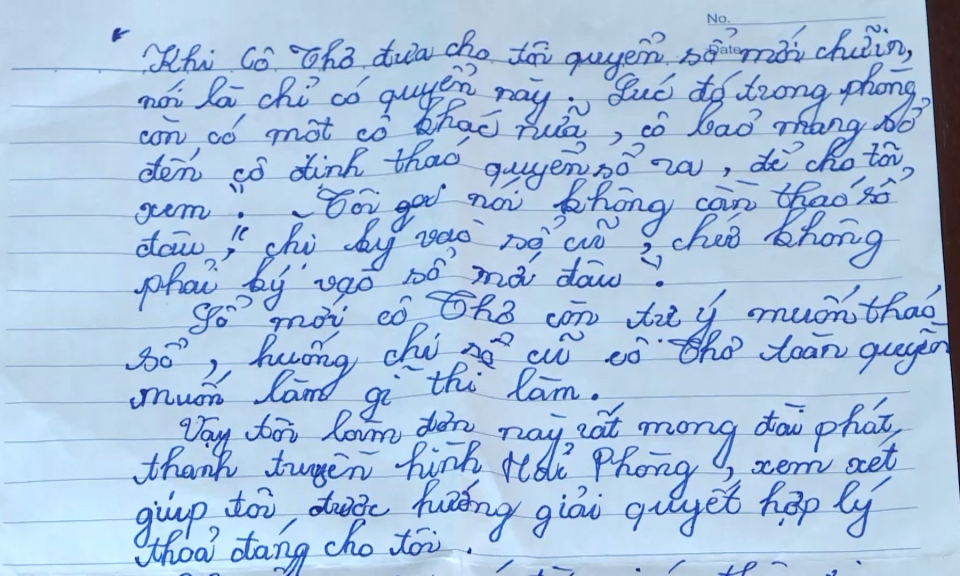 No.
Date
Khi cô Thở đưa cho tôi quyển sổ mới chuyển,
nói là chỉ có quyển này. Lúc đó trong phòng
còn có một cô khác nữa, cô bảo mang sổ
đến cô định tháo quyển sổ ra, để cho tôi
xem". Tôi nói không cần tháo sổ
đâu, "chỉ ký vào sổ cũ, chứ không
phải ký vào sổ mới đâu".
Sổ mới cô Thở còn tự ý muốn tháo
sổ, huống chi sổ cũ cô Thở toàn quyền
muốn làm gì thì làm.
Vậy tôi làm đơn này rất mong đài phát
thanh truyền hình Hải Phòng, xem xét
giúp tôi được hướng giải quyết hợp lý
thoả đáng cho tôi.